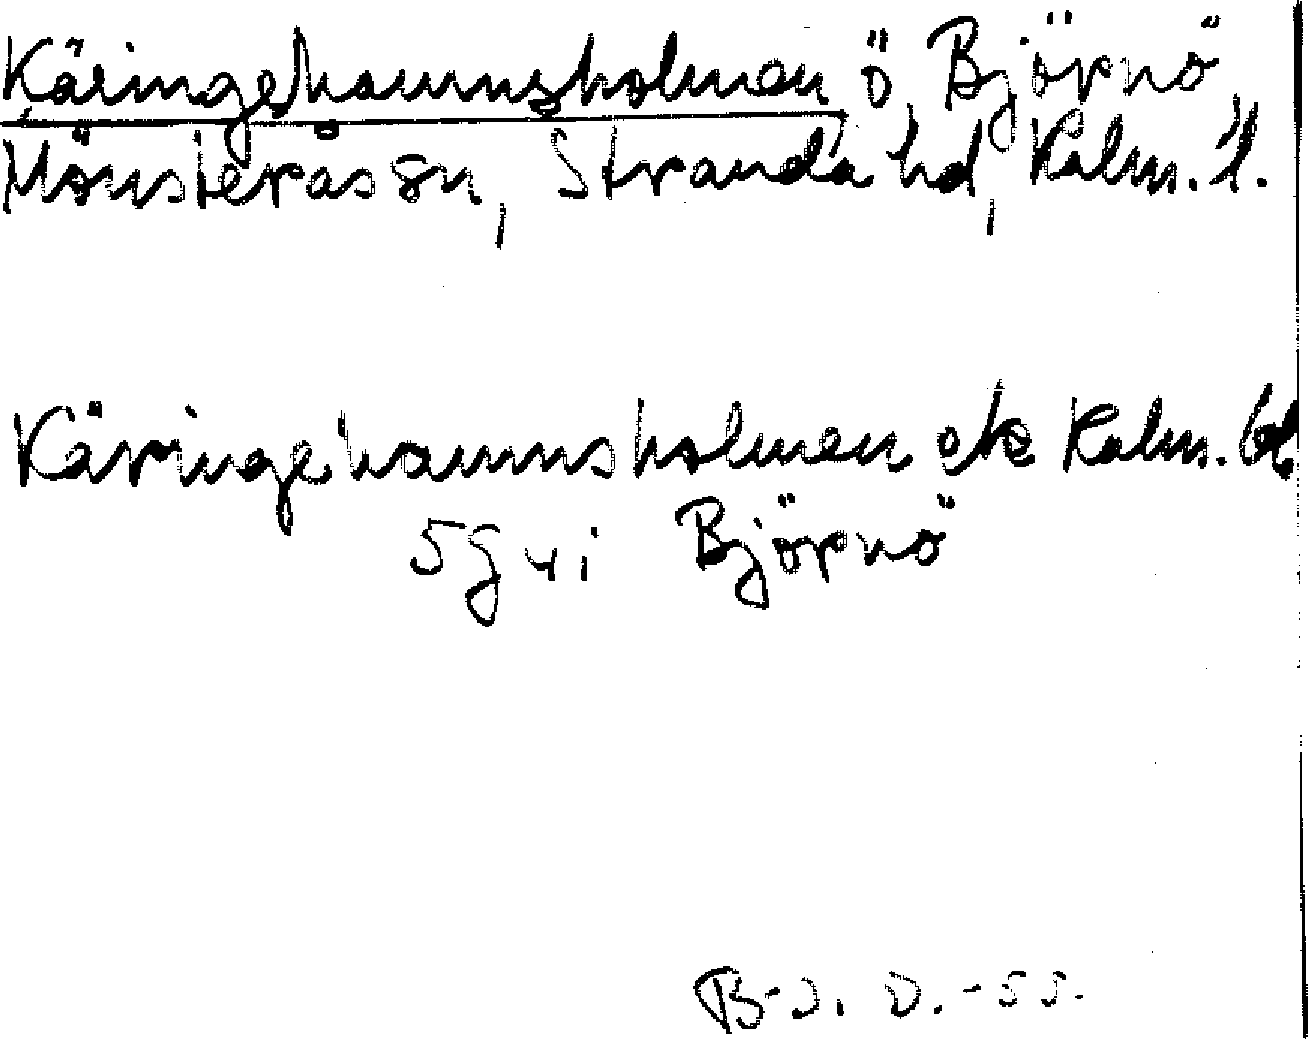 Käringehamnsholmen, ö, Björnö
Mönsterås sn, Stranda hd, Kalm. l.
Käringehamnsholmen ek Kalm. bl.
5g vi Björnö
B-J. O. -55.